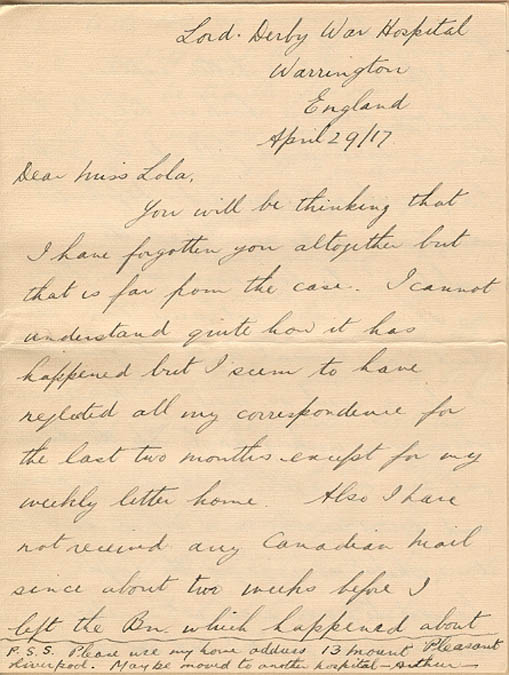 Lord. Derby War Hospital
Warrington
England
April 29/17.
Dear Miss Lola,
You will be thinking that
I have forgotten you altogether but
that is far from the case. I cannot
understand quite how it has
happened but I seem to have
neglected all my correspondence for
the last two months except for my
weekly letter home. Also I have
not received any Canadian mail
since about two weeks before I
left the Bn. which happened about
P.S.S. Please use my home address 13 Mount Pleasant
Liverpool. May be moved to another hospital - Arthur